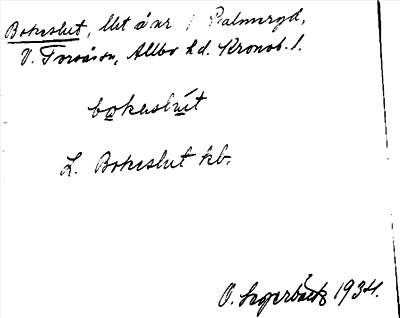 Bokeslut, litet å nr 1 Palmaryd,
V. Torsås sn, Allbo hd. Kronob. l.
bokeslut
L. Bokeslut kb.
O. Segerbäck 1934.